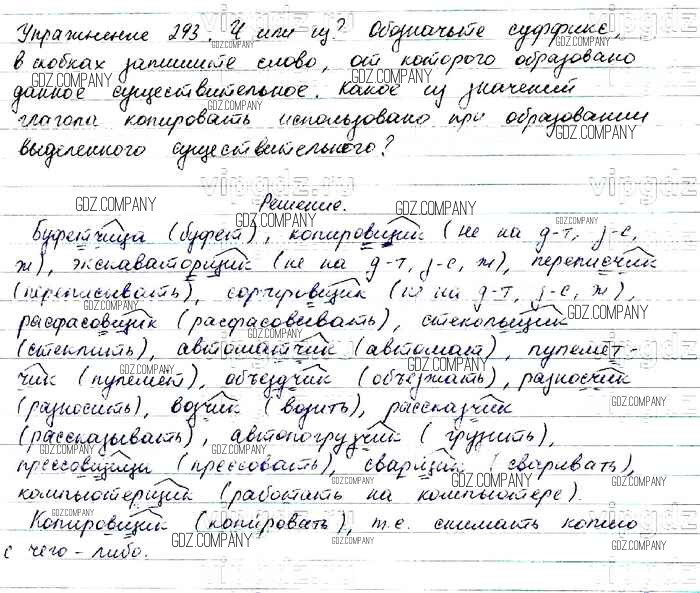 Упражнение 293. Ч или щ? Обозначьте суффикс,
в скобках запишите слово, от которого образовано
данное существительное. Какое из значений
глагола копировать использовано при образовании
выделенного существительного?
Решение.
Буфетчица (буфет), копировщик (не на д-т, з-с,
ж), экскаваторщик (не на д-т, з-с, ж), переписчик
(переписывать), сортировщик (не на д-т, з-с, ж),
расфасовщик (расфасовывать), стекольщик
(стеклить), автоматчик (автомат), пулемёт-
чик (пулемёт), объездчик (объезжать), разносчик
(разносить), возчик (возить), рассказчик
(рассказывать), автопогрузчик (грузить),
прессовщицы (прессовать), сварщик (сваривать),
компьютерщик (работать на компьютере).
Копировщик (копировать), т.е. снимать копию
с чего-либо.
GDZ.COMPANY
vipgdz.ru